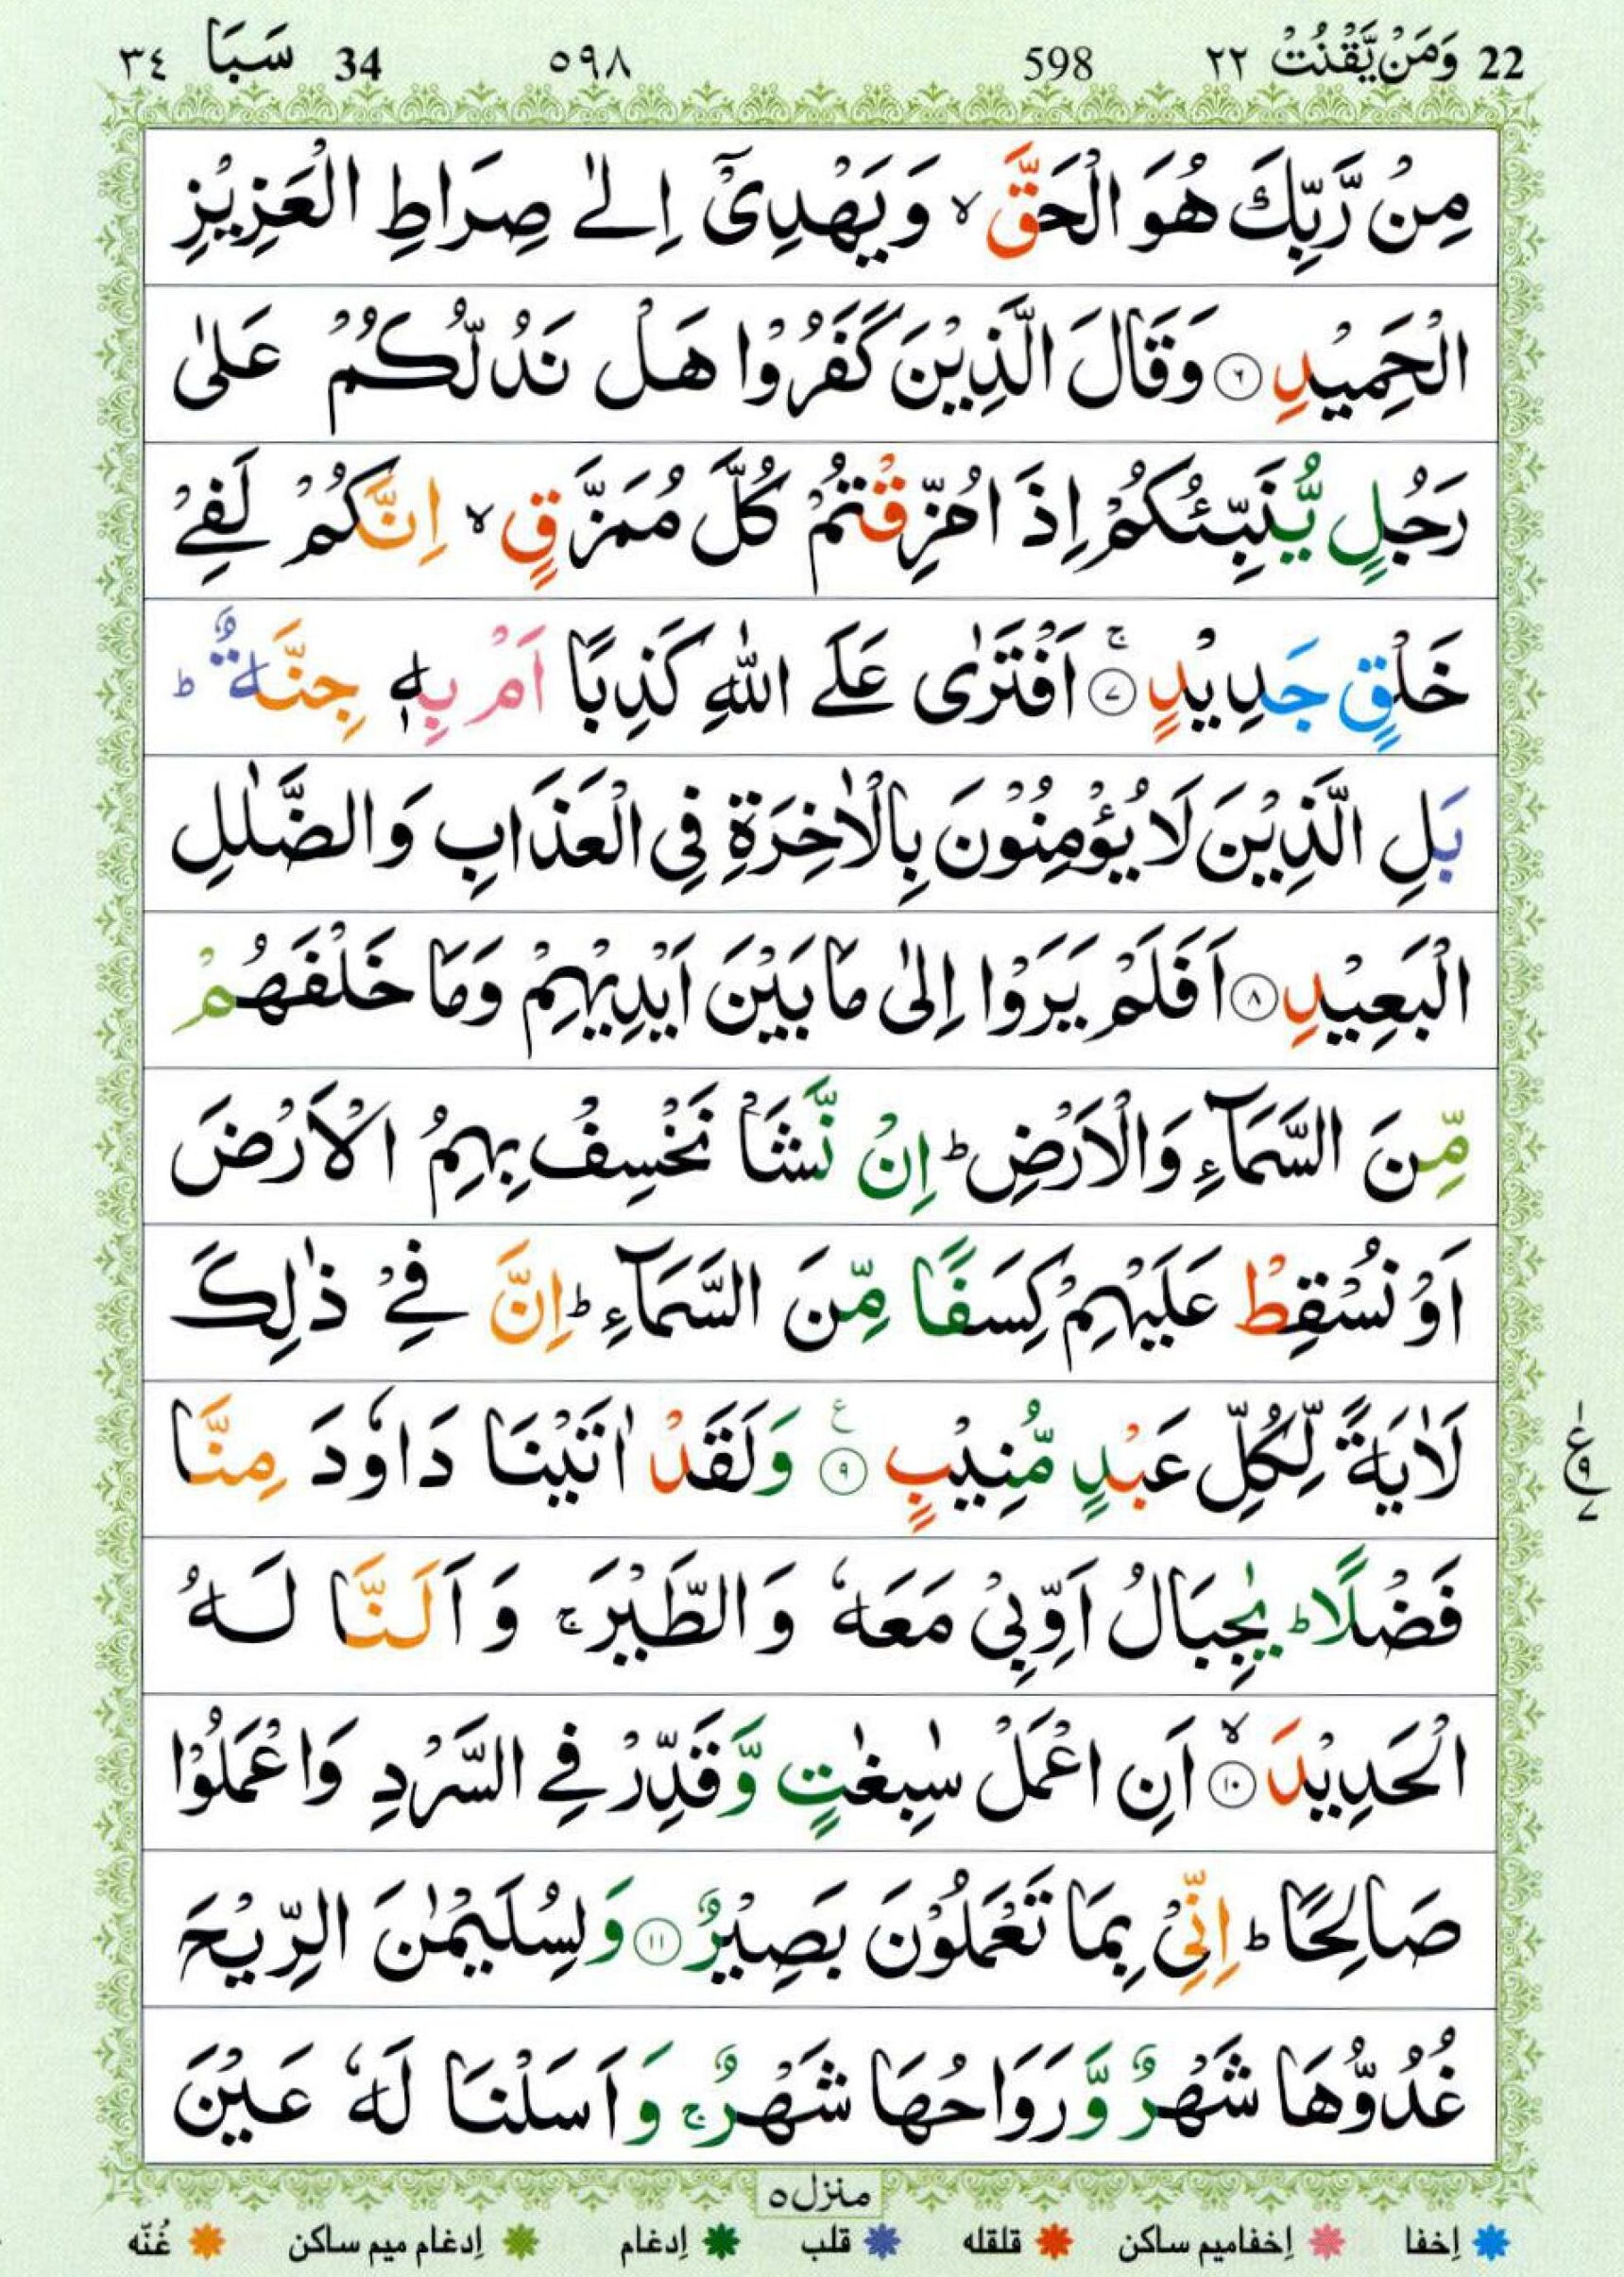 22 وَمَنْ يَّقْنُتْ ٢٢ 598 ٥٩٨ 34 سَبَا ٣٤
مِنْ رَّبِّكَ هُوَ الْحَقَّ ۙ وَيَهْدِيْۤ اِلٰى صِرَاطِ الْعَزِيْزِ
الْحَمِيْدِ ۝٦ وَقَالَ الَّذِيْنَ كَفَرُوْا هَلْ نَدُلُّكُمْ عَلٰى
رَجُلٍ يُّنَبِّئُكُمْ اِذَا مُزِّقْتُمْ كُلَّ مُمَزَّقٍ ۙ اِنَّكُمْ لَفِيْ
خَلْقٍ جَدِيْدٍ ۝٧ۚ اَفْتَرٰى عَلَى اللّٰهِ كَذِبًا اَمْ بِهٖ جِنَّةٌ ؕ
بَلِ الَّذِيْنَ لَا يُؤْمِنُوْنَ بِالْاٰخِرَةِ فِى الْعَذَابِ وَالضَّلٰلِ
الْبَعِيْدِ ۝٨ اَفَلَمْ يَرَوْا اِلٰى مَا بَيْنَ اَيْدِيْهِمْ وَمَا خَلْفَهُمْ
مِّنَ السَّمَآءِ وَالْاَرْضِ ؕ اِنْ نَّشَاْ نَخْسِفْ بِهِمُ الْاَرْضَ
اَوْ نُسْقِطْ عَلَيْهِمْ كِسَفًا مِّنَ السَّمَآءِ ؕ اِنَّ فِيْ ذٰلِكَ
لَاٰيَةً لِّكُلِّ عَبْدٍ مُّنِيْبٍ ۝٩ ع وَلَقَدْ اٰتَيْنَا دَاوٗدَ مِنَّا
ع ٩ ٧
فَضْلًا ؕ يٰجِبَالُ اَوِّبِيْ مَعَهٗ وَالطَّيْرَ ۚ وَاَلَنَّا لَهُ
الْحَدِيْدَ ۝١٠ۙ اَنِ اعْمَلْ سٰبِغٰتٍ وَّقَدِّرْ فِي السَّرْدِ وَاعْمَلُوْا
صَالِحًا ؕ اِنِّيْ بِمَا تَعْمَلُوْنَ بَصِيْرٌ ۝١١ وَلِسُلَيْمٰنَ الرِّيْحَ
غُدُوُّهَا شَهْرٌ وَّرَوَاحُهَا شَهْرٌ ۚ وَاَسَلْنَا لَهٗ عَيْنَ
منزل ٥
إخفا إخفامیم ساکن قلقله قلب إدغام إدغام میم ساکن غُنّه